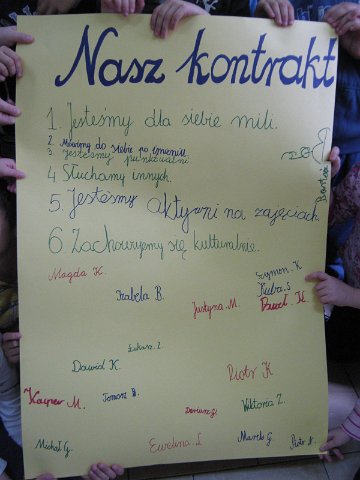 Nasz kontrakt
1. Jesteśmy dla siebie mili.
2. Mówimy do siebie po imieniu.
3. Jesteśmy punktualni
4 Słuchamy innych.
5. Jesteśmy aktywni na zajęciach.
6. Zachowujemy się kulturalnie.
Magda K.
Szymon. K
Kuba. S
Izabela B.
Justyna. M.
Paweł. K
Łukasz. Z.
Dawid K.
Piotr K
Kacper M.
Tomasz B.
Wiktoria Z.
Michał G.
Ewelina. L
Marek G.
Piotr